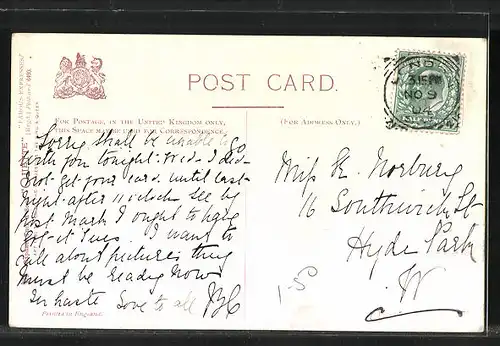 POST CARD.
FOR POSTAGE, IN THE UNITED KINGDOM ONLY,
THIS SPACE MAY BE USED FOR CORRESPONDENCE.
(FOR ADDRESS ONLY.)
LONDON
3.15 PM
NO 9
Sorry shall be unable to go
with you tonight: Wed- I did-
not get your card until last-
night after 11 o'clock. See by
post Mark I ought to have
got-it Tues. I want to
call about pictures they
must be ready now
In haste Love to all
Miss Norbury
16 Southwick St
Hyde Park
W
1-50
Printed in England.